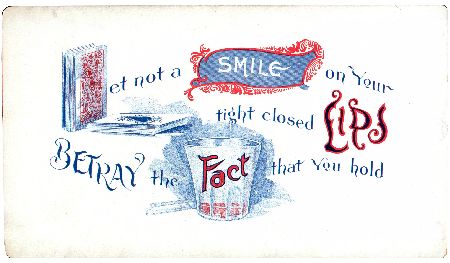 Let not a SMILE on Your
tight closed LIPS
BETRAY the Fact that You hold